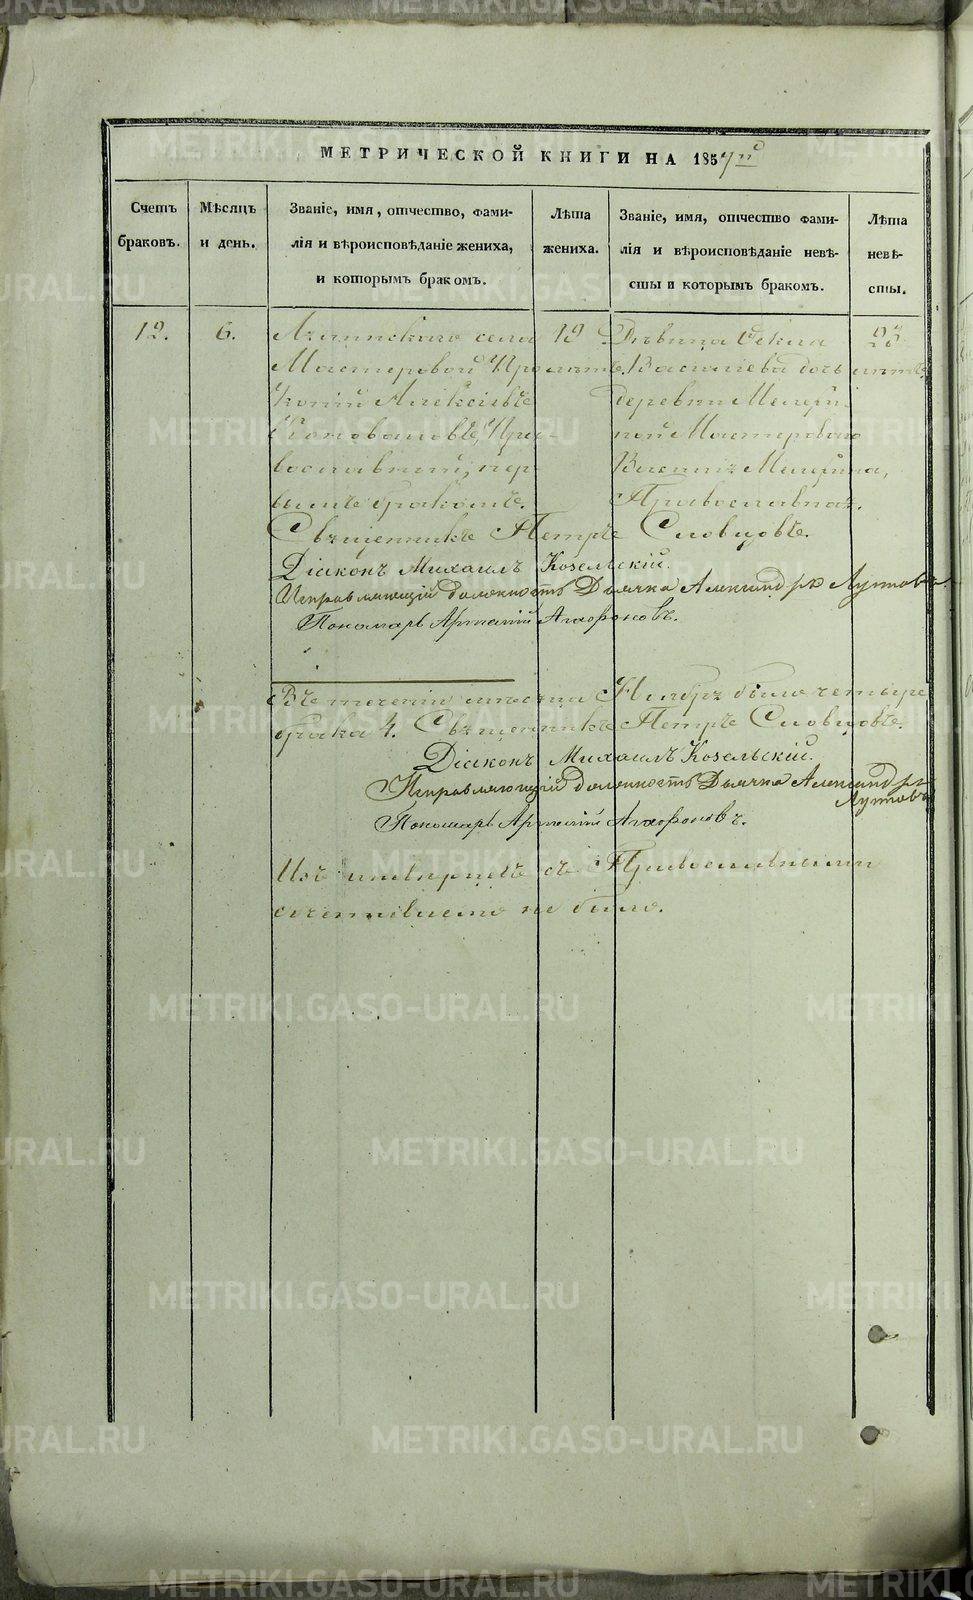 МЕТРИЧЕСКОЙ КНИГИ НА 1857й
Счетъ браковъ.
Мѣсяцъ и день.
Званіе, имя, отчество, фами-
лія и вѣроисповѣданіе жениха,
и которымъ бракомъ.
Лѣта
жениха.
Званіе, имя, отчество фами-
лія и вѣроисповѣданіе невѣ-
сты и которымъ бракомъ.
Лѣта
невѣ-
сты.
12.
6.
села
Мастеровой Про-
копій Алексѣевъ
Коноваловъ, Пра-
вославный, пер-
вымъ бракомъ.
19
лѣтъ.
Дѣвица Ѳекла
Васильева дочь
деревни
Мастероваго
Василія
Православная.
23
лѣтъ
Священникъ Петръ Словцовъ.
Діаконъ Михаилъ Козельскій.
Исправляющій должность Дьячка Александръ Лутовъ
Пономарь Артемій Агафоновъ.
Въ теченіи мѣсяца Ноября было четыре
брака 4. Священникъ Петръ Словцовъ.
Діаконъ Михаилъ Козельскій.
Исправляющій должность Дьячка Александръ
Лутовъ
Пономарь Артемій Агафоновъ.
Изъ иновѣрцевъ съ Православными
не было.
METRIKI.GASO-URAL.RU